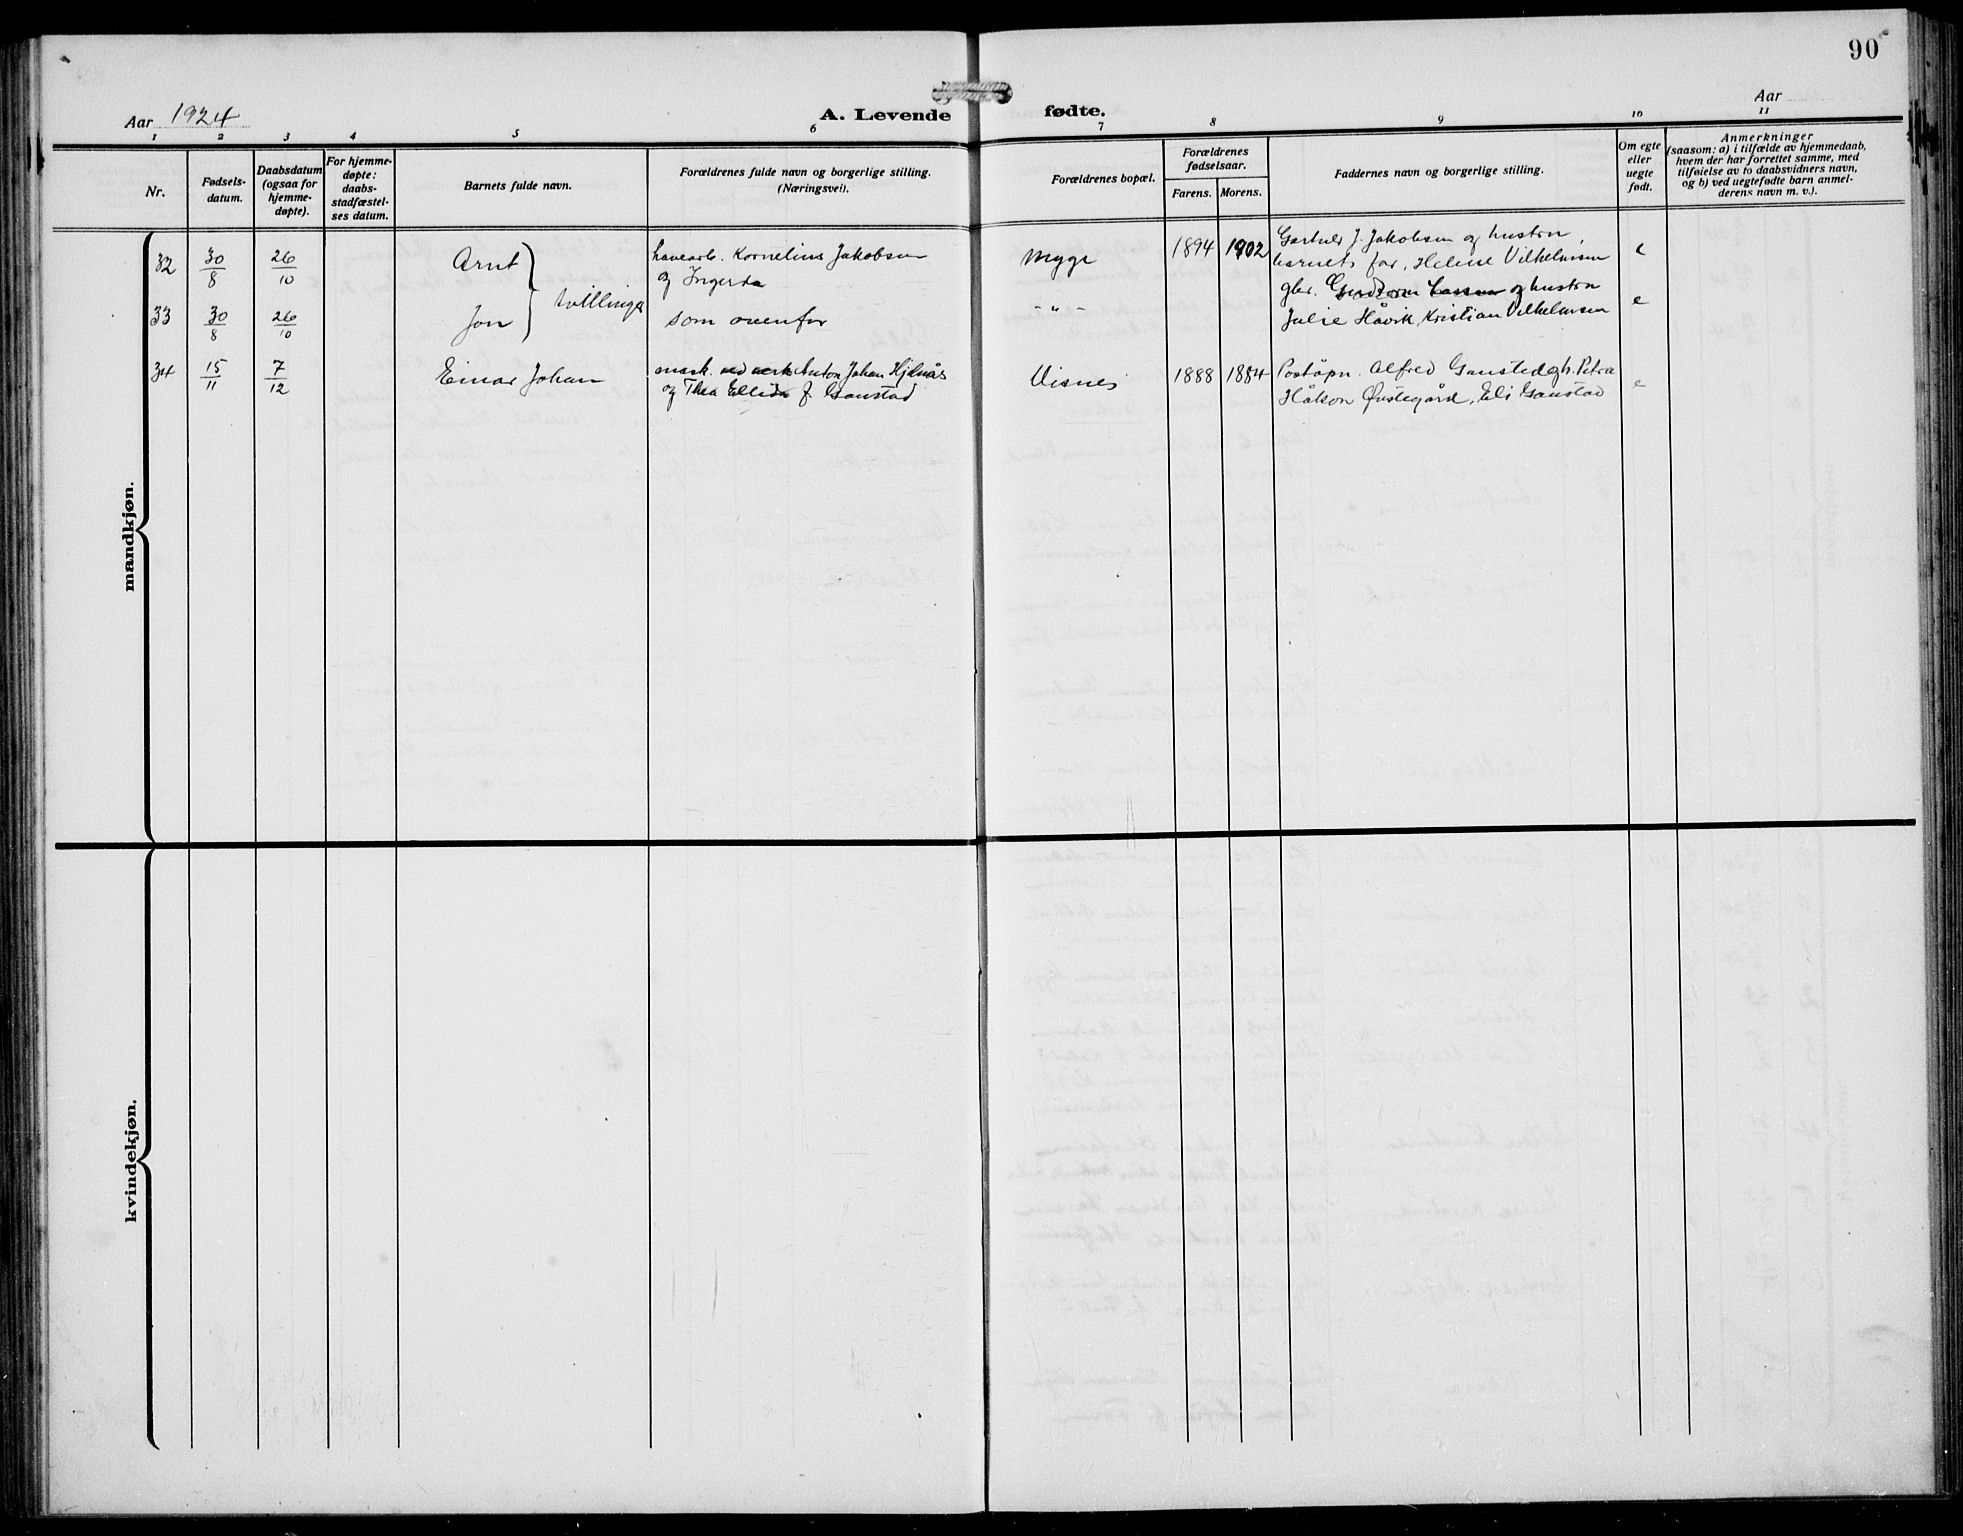 90
Aar 1924
A. Levende fødte.
Aar
1 2 3 4 5 6 7 8 9 10 11
Nr.
Fødsels-
datum.
Daabsdatum
(ogsaa for
hjemme-
døpte).
For hjemme-
døpte:
daabs-
stadfæstel-
ses datum.
Barnets fulde navn.
Forældrenes fulde navn og borgerlige stilling.
(Næringsvei).
Forældrenes bopæl.
Forældrenes
fødselsaar.
Farens. Morens.
Faddernes navn og borgerlige stilling.
Om egte
eller
uegte
født.
Anmerkninger
(saasom: a) i tilfælde av hjemmedaab,
hvem der har forrettet samme, med
tilføielse av to daabsvidners navn,
og b) ved uegtefødte barn anmel-
derens navn m. v.).
mandkjøn.
32 30/8 26/10 Arnt havearb. Kornelius Jakobsen Myge 1894 1902 Gartner J. Jakobsen og hustru, e
og Ingerda barnets far, Helene Vilhelmsen
tvillinger
gbr. og hustru
33 30/8 26/10 Jon som ovenfor - " - Julie Håvik, Kristian Vilhelmsen e
34 15/11 7/12 Einar Johan mask. Anton Johan Hjelnås Visnes 1888 1884 Poståpn. Alfred Gaustad gh. Petra e
og Thea Ellida f. Gaustad Håkon Østegård, Eli Gaustad
kvindekjøn.